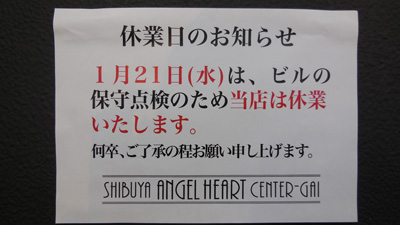 休業日のお知らせ
１月21日(水)は、ビルの
保守点検のため当店は休業
いたします。
何卒、ご了承の程お願い申し上げます。
SHIBUYA ANGEL HEART CENTER-GAI